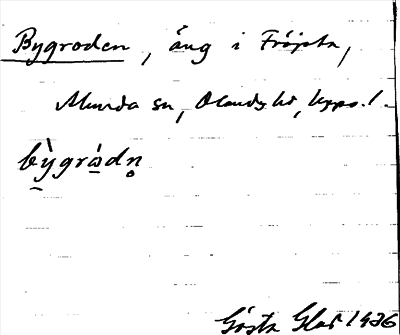 Bygroden, äng i Fröjsta,
Alunda sn, Olands hd, Upps. l.
bỳgrádn̥
Gösta Glas 1936